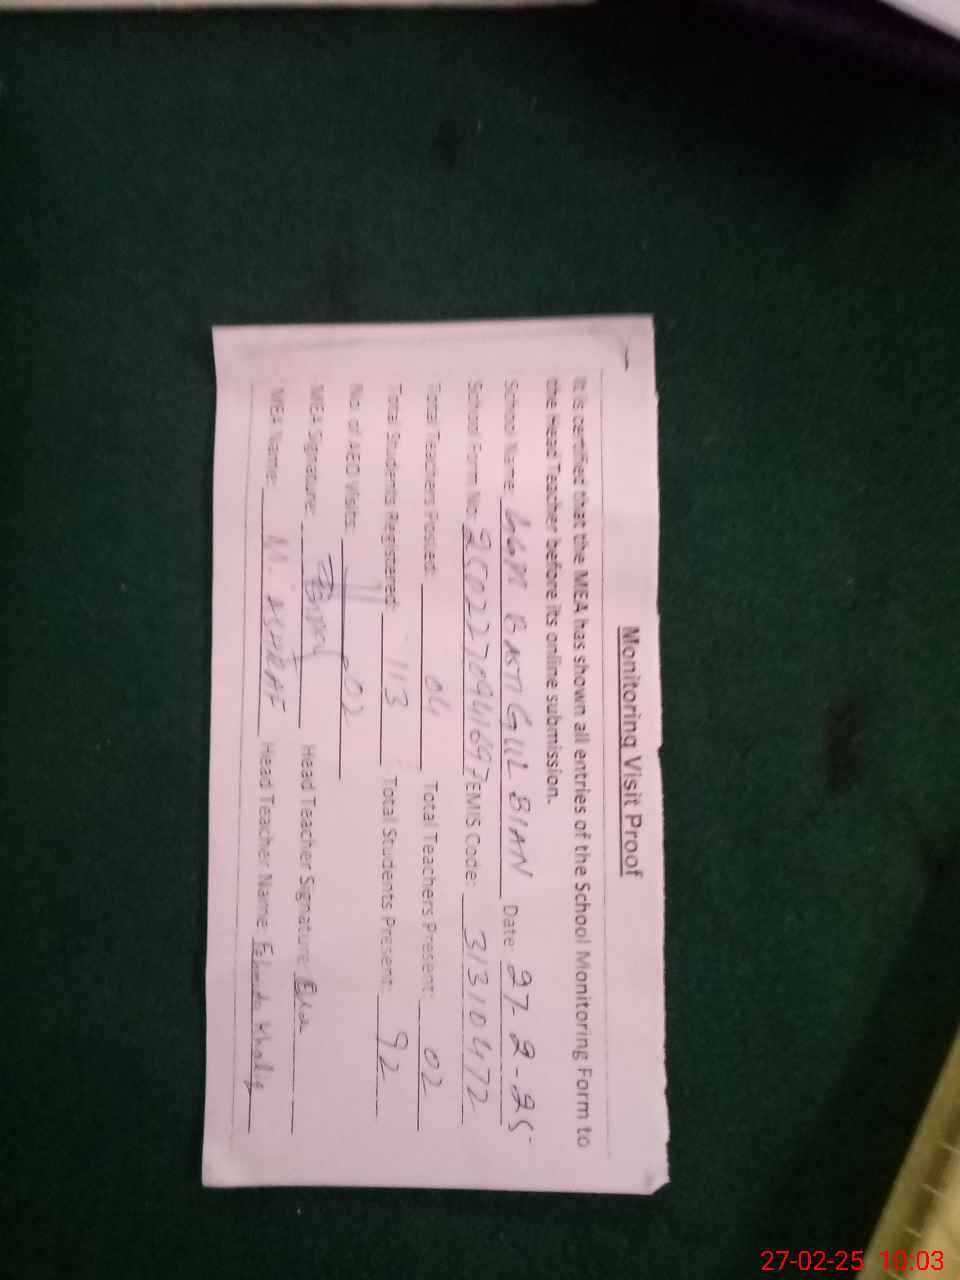 Monitoring Visit Proof
It is certified that the MEA has shown all entries of the School Monitoring Form to
the Head Teacher before its online submission.
School Name: GGM BASTI GULL BIAN Date: 27-2-25
School Form No: 250227094697 EMIS Code: 31310472
Total Teachers Posted: 04 Total Teachers Present: 02
Total Students Registered: 113 Total Students Present: 92
No. of AEO Visits: 02
MEA Signature: Head Teacher Signature:
MEA Name: M. ASHRAF Head Teacher Name: Khaliq
27-02-25 10:03